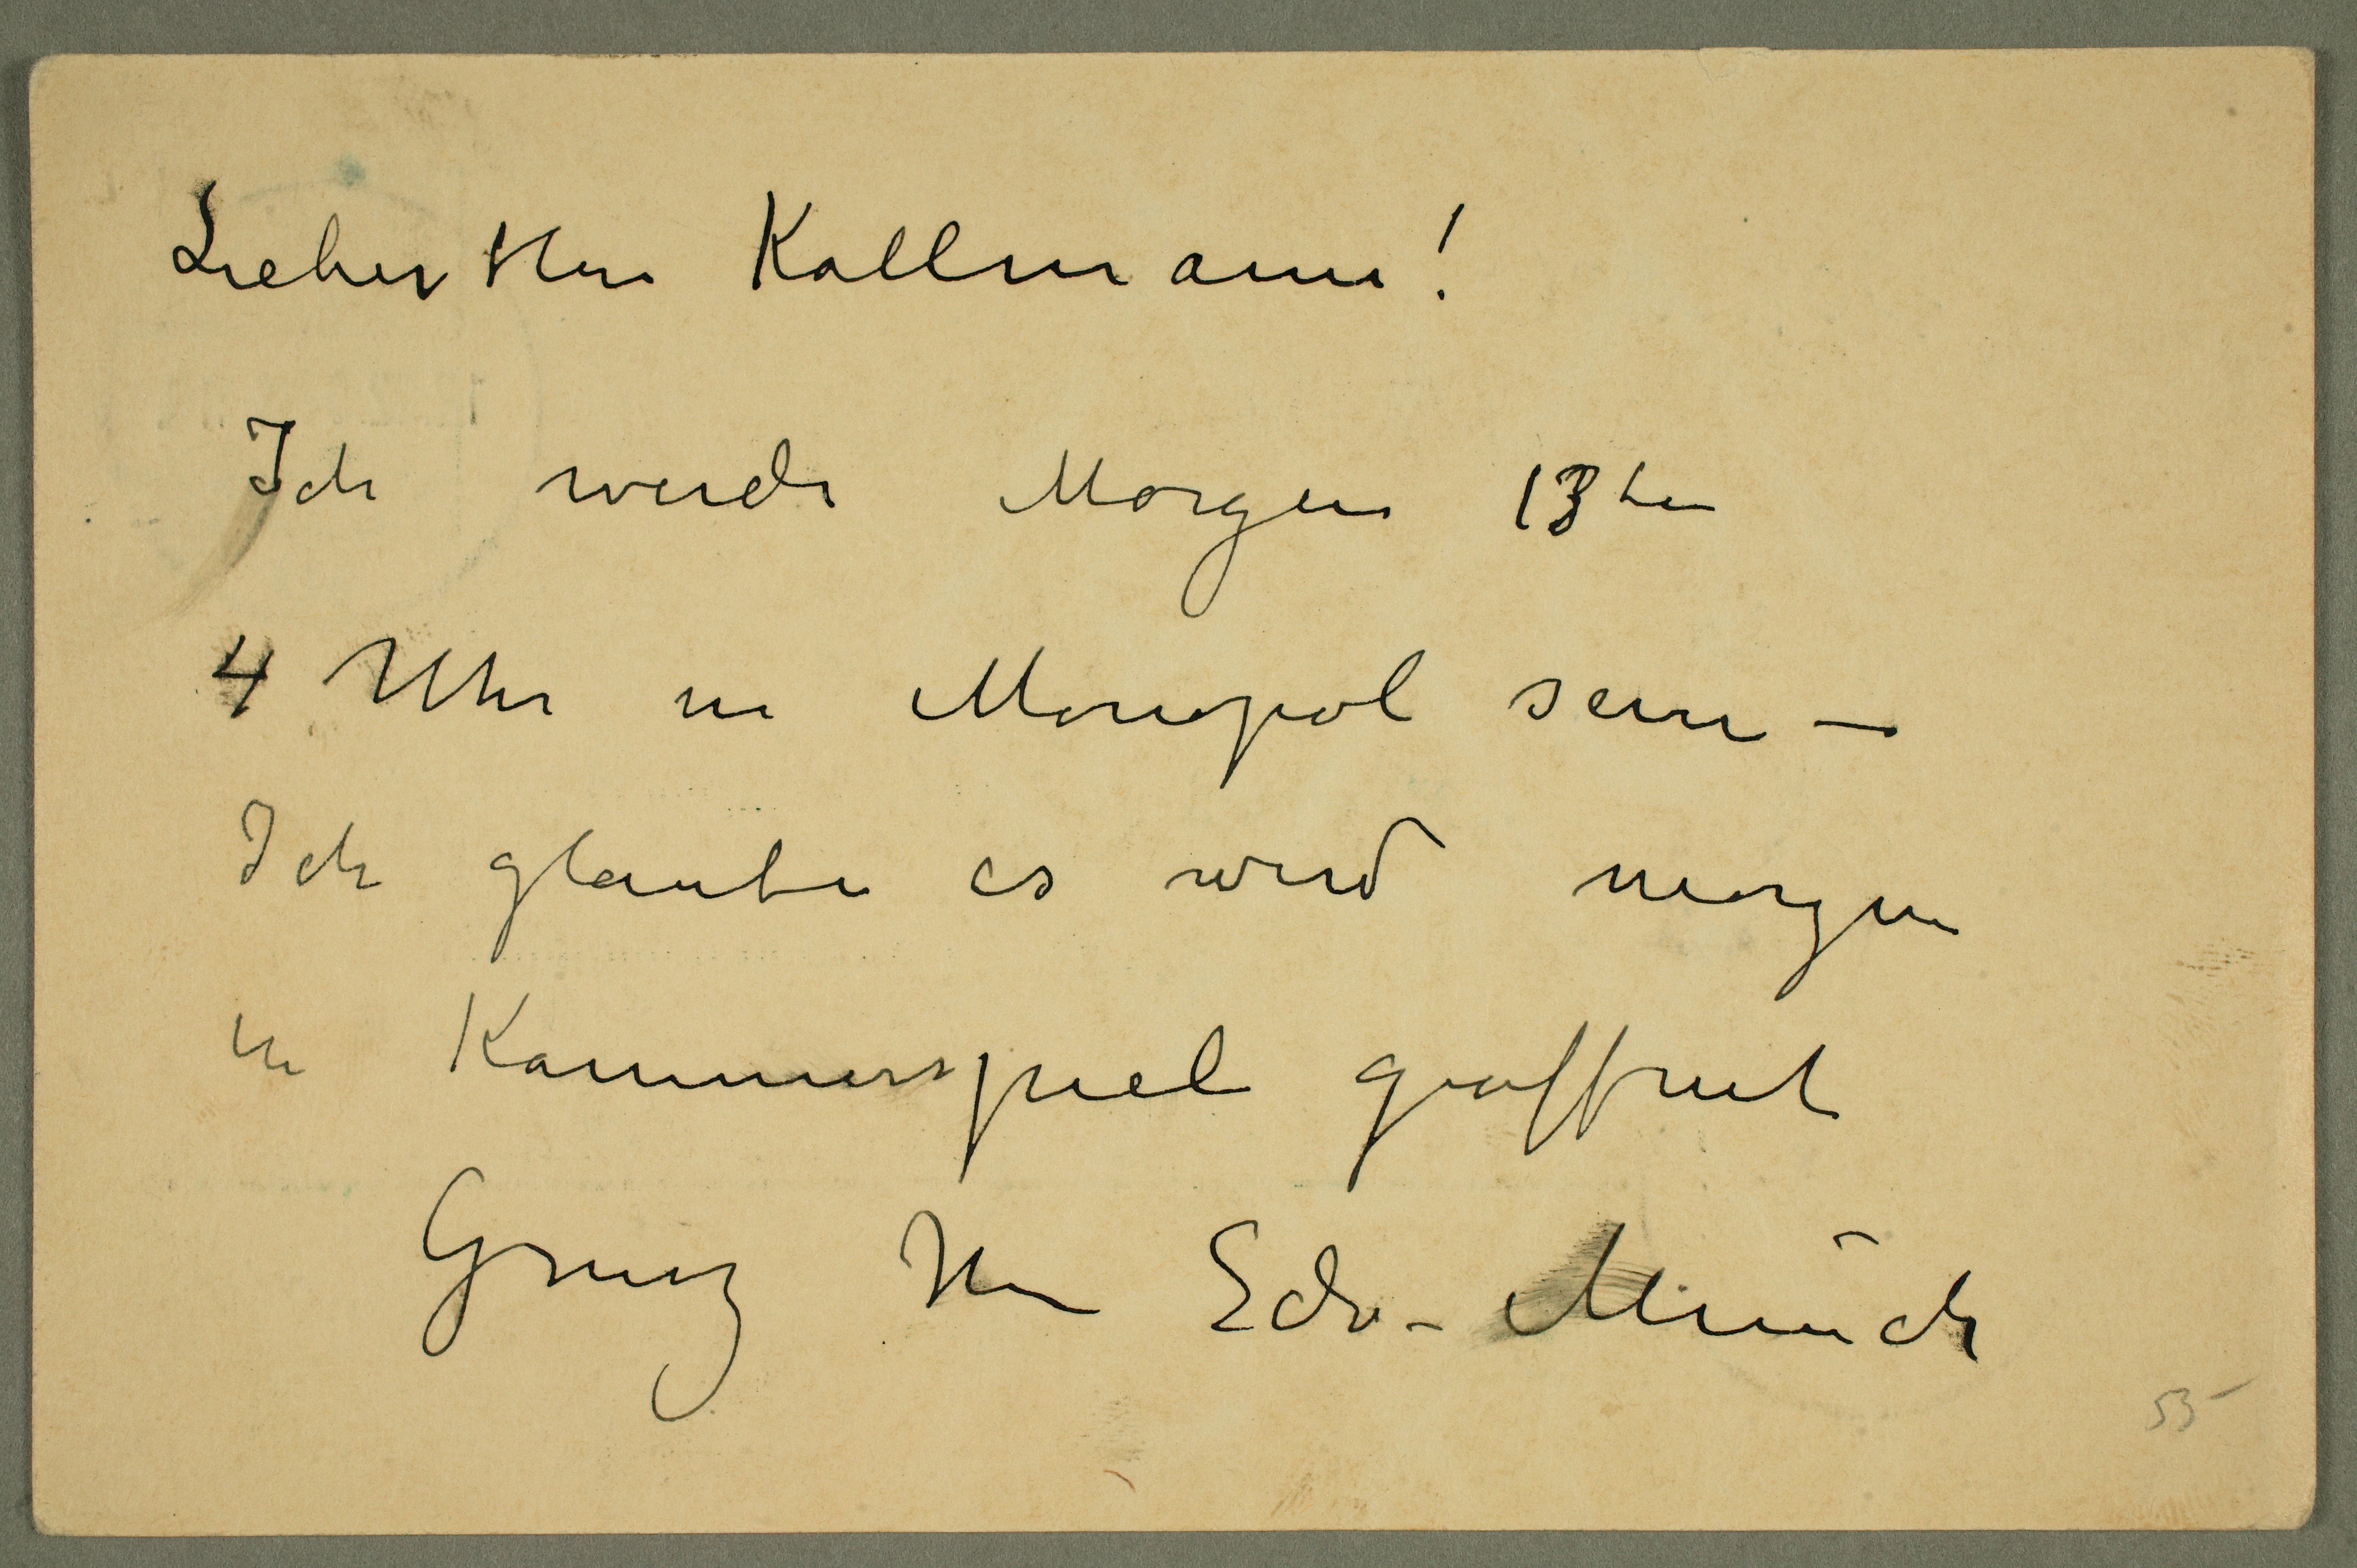 Lieber Herr Kollmann!
Ich werde Morgen 13ten
4 Uhr in Monopol sein –
Ich glaube es wird morgen
in Kammerspiel geöffnet
Gruß Ihr Edv. Munch
53